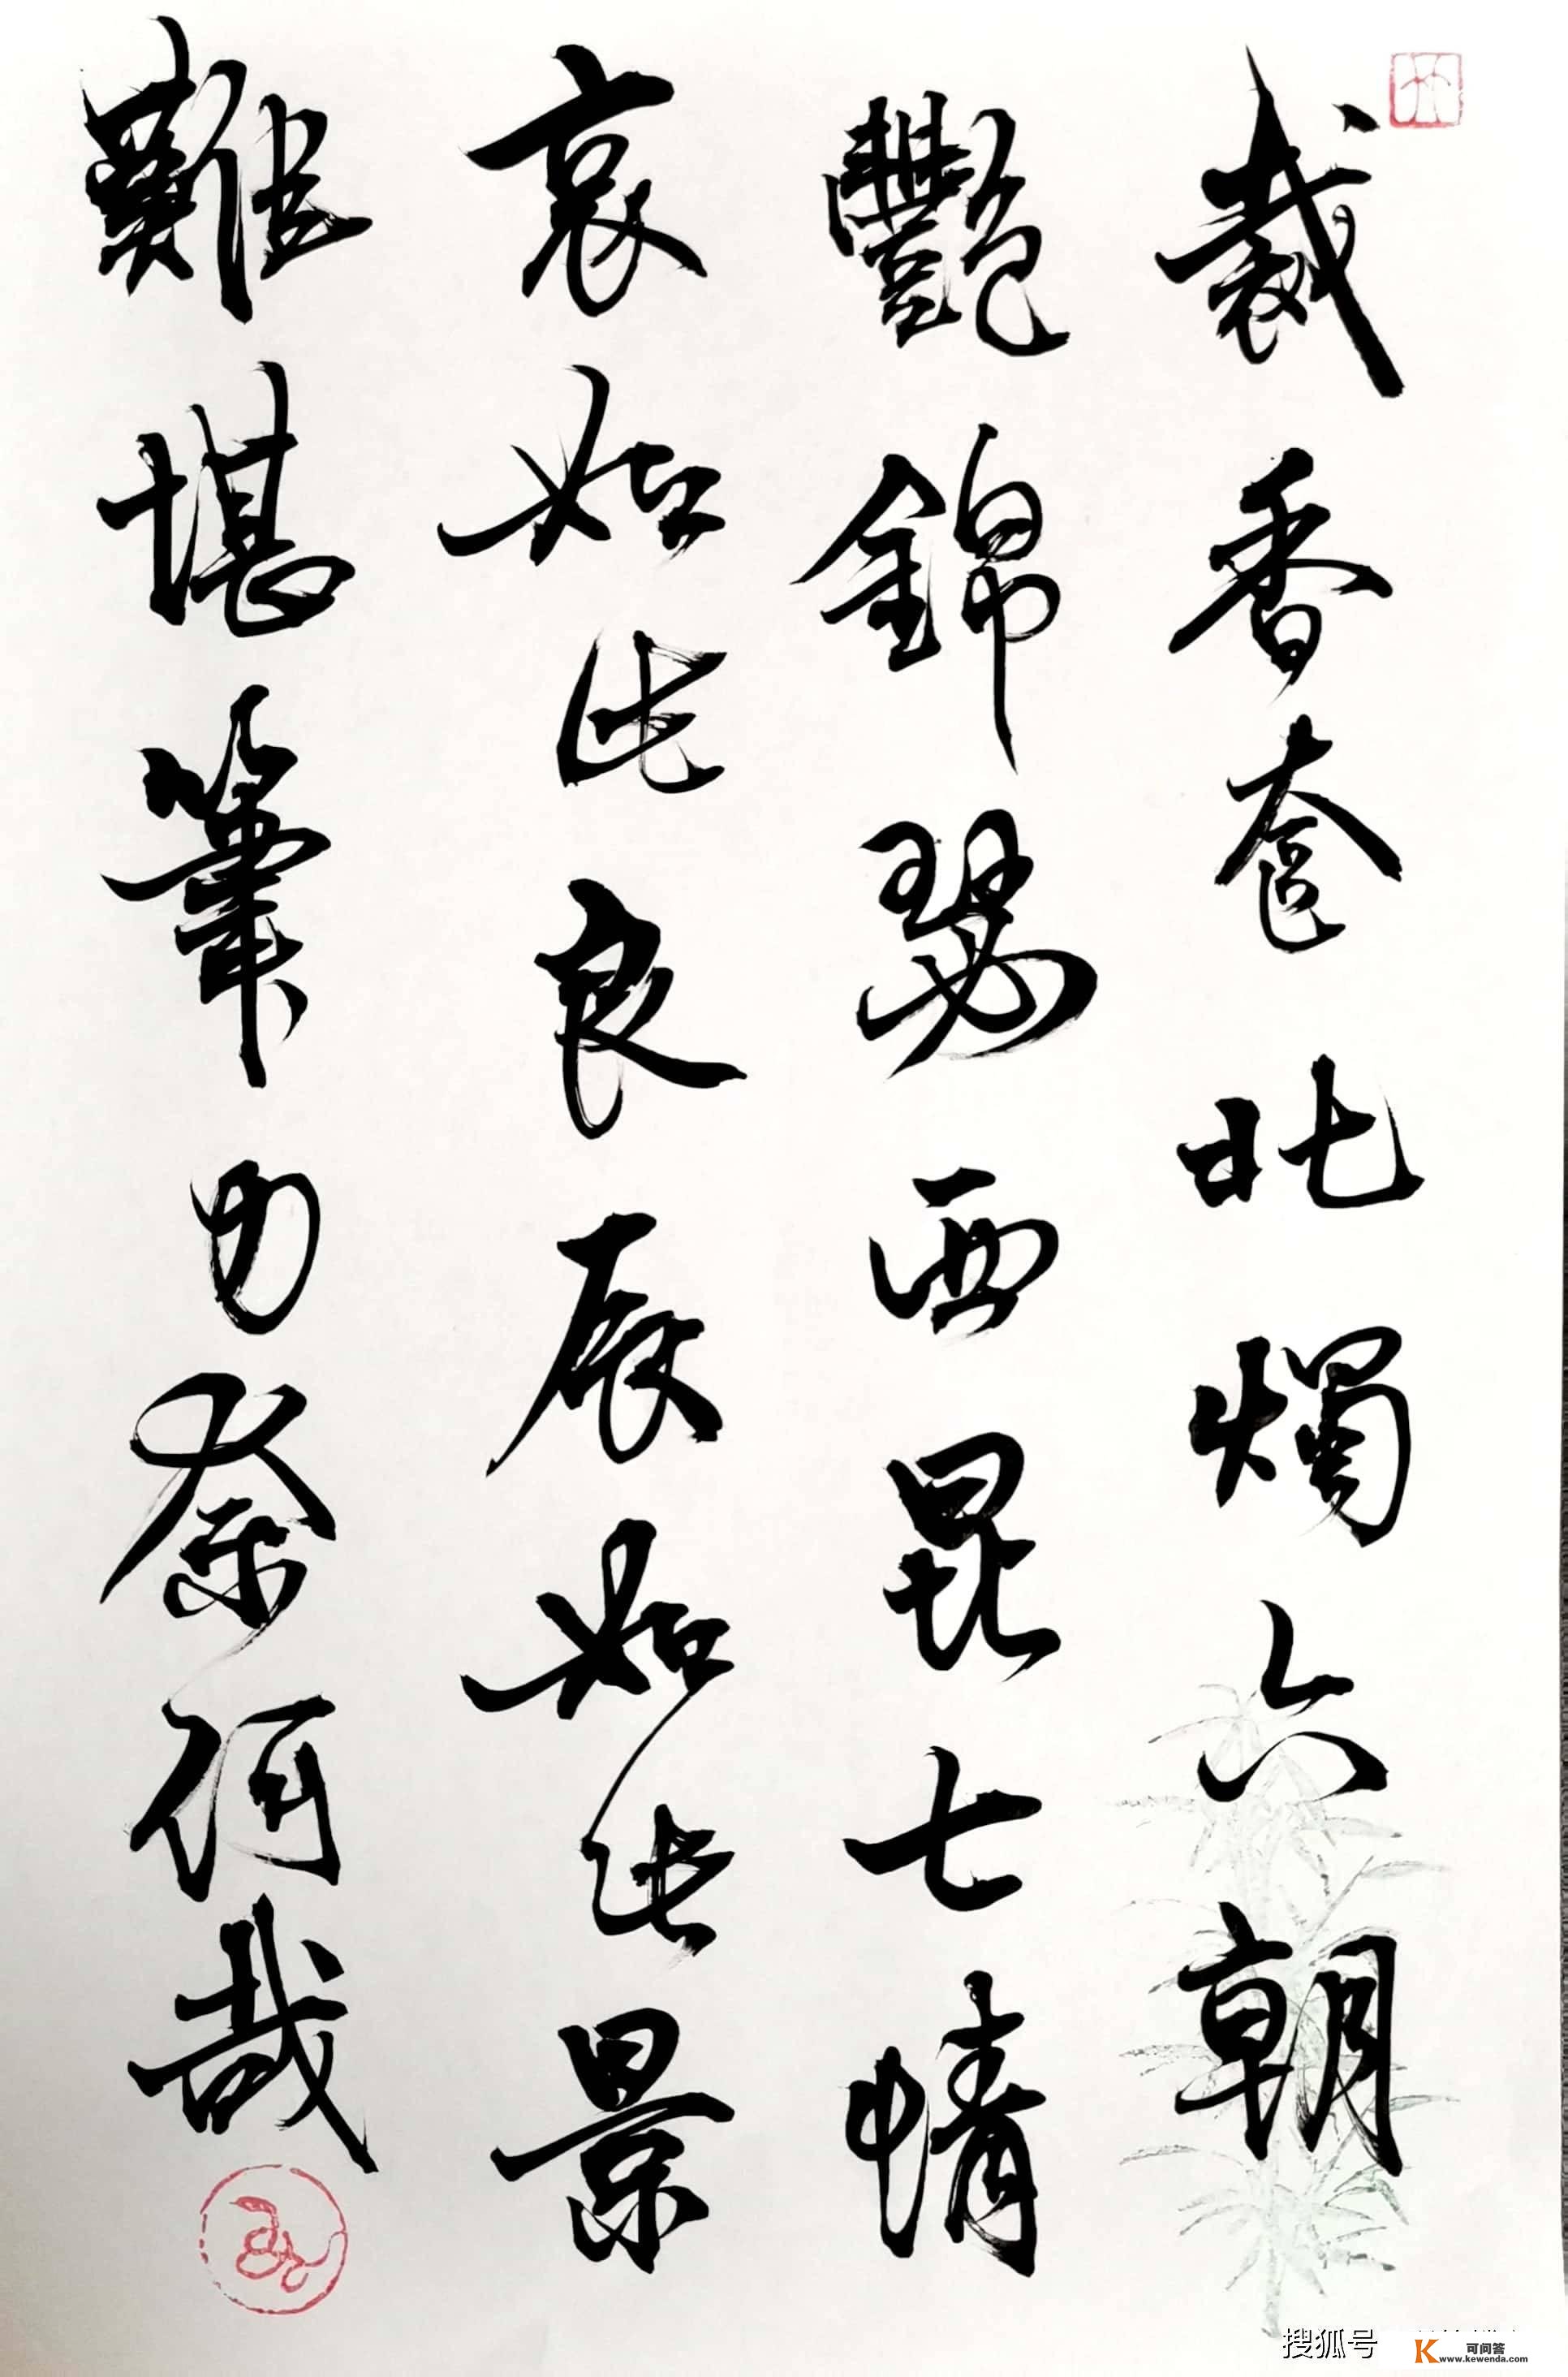 裁香奩北燭六朝
豔錦瑟西昆七情
哀如此良辰如此景
難堪筆力奈何哉
搜狐号
K 可问答
www.kewenda.com